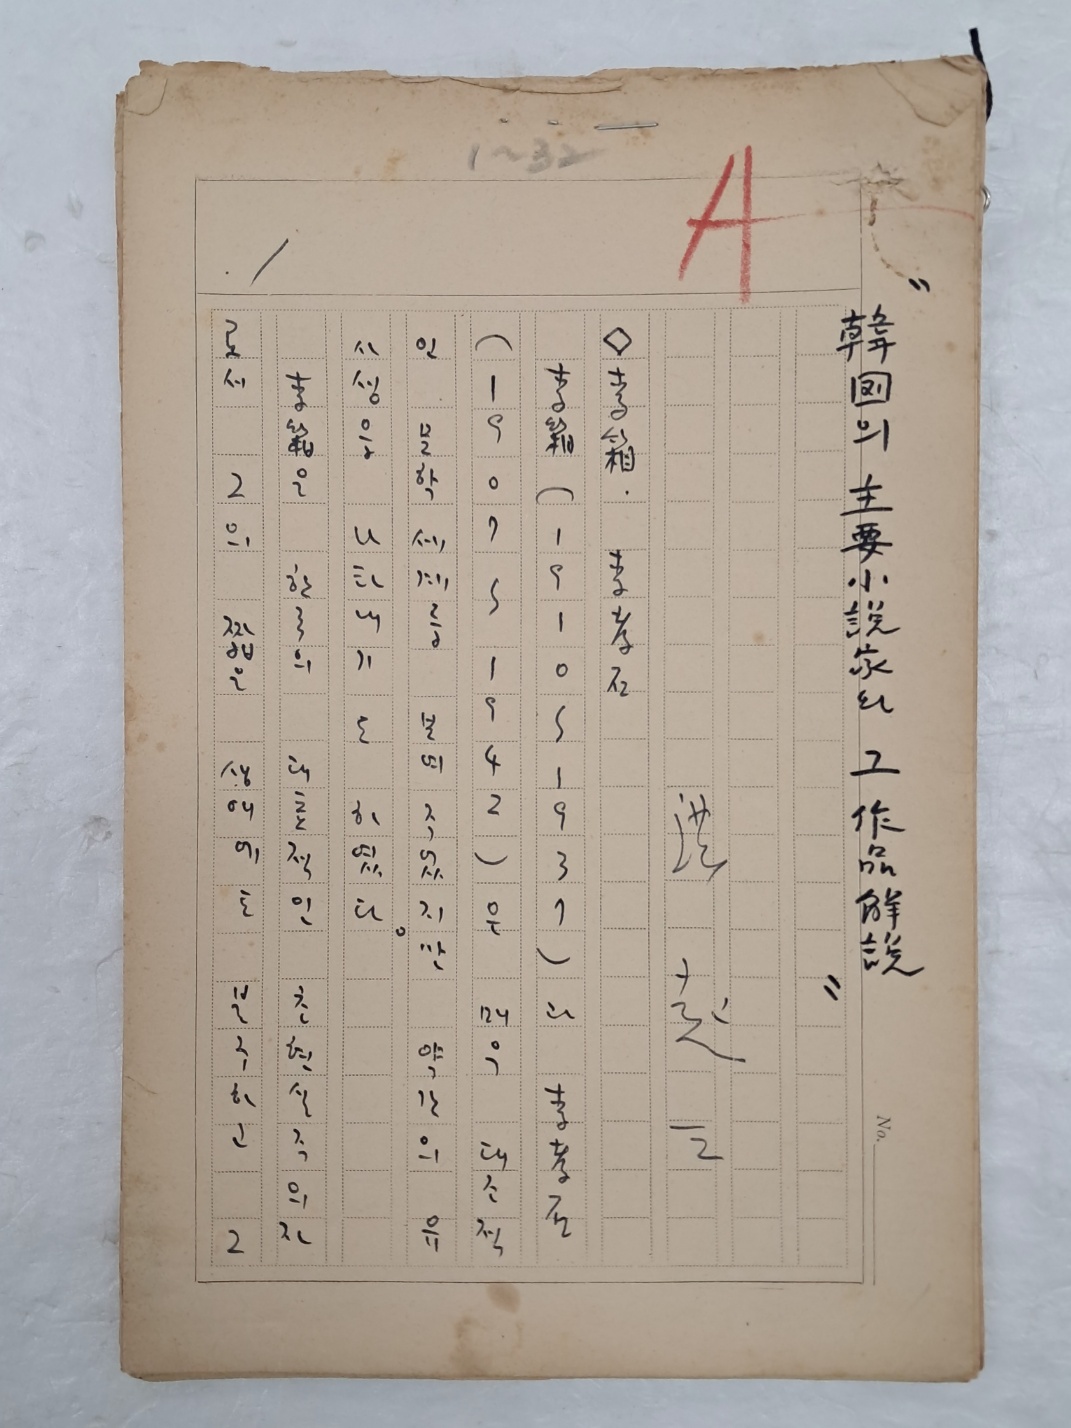 1~32
A
"韓國의 主要小說家와 그 作品解說"
No.
洪
◇李箱. 李孝石
李箱(1910~1937)과 李孝石
(1907~1942)은 매우 대조적
인 문학 세계를 보여 주었지만 약간의 유
사성을 나타내기도 하였다。
李箱은 한국의 대표적인 초현실주의자
로서 그의 짧은 생애에도 불구하고 그
1